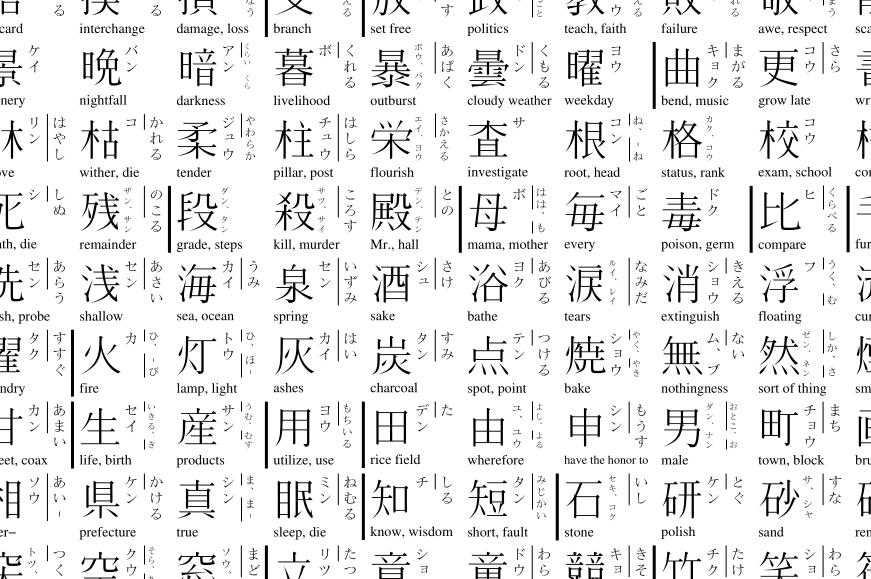 card interchange damage, loss branch set free politics teach, faith failure awe, respect
景 ケイ 晩 バン 暗 アン くらい くら 暮 ボ くれる 暴 ボウ、バク あばく 曇 ドン くもる 曜 ヨウ 曲 キョク まがる 更 コウ さら
nightfall darkness livelihood outburst cloudy weather weekday bend, music grow late
リン はやし 枯 コ かれる 柔 ジュウ やわらか 柱 チュウ はしら 栄 エイ、ヨウ さかえる 査 サ 根 コン ね、–ね 格 カク、コウ 校 コウ
wither, die tender pillar, post flourish investigate root, head status, rank exam, school
死 シ しぬ 残 ザン、サン のこる 段 ダン、タン 殺 サツ、サイ ころす 殿 デン、テン との 母 ボ はは、も 毎 マイ ごと 毒 ドク 比 ヒ くらべる
die remainder grade, steps kill, murder Mr., hall mama, mother every poison, germ compare
洗 セン あらう 浅 セン あさい 海 カイ うみ 泉 セン いずみ 酒 シュ さけ 浴 ヨク あびる 涙 ルイ、レイ なみだ 消 ショウ きえる 浮 フ うく、む
probe shallow sea, ocean spring sake bathe tears extinguish floating
濯 タク すすぐ 火 カ ひ、–び 灯 トウ ひ、ほ– 灰 カイ はい 炭 タン すみ 点 テン つける 焼 ショウ やく、やき 無 ム、ブ ない 然 ゼン、ネン しか、さ
fire lamp, light ashes charcoal spot, point bake nothingness sort of thing
甘 カン あまい 生 セイ いきる、き 産 サン うむ、むす 用 ヨウ もちいる 田 デン た 由 ユ、ユウ よし、よる 申 シン もうす 男 ダン、ナン おとこ、お 町 チョウ まち
coax life, birth products utilize, use rice field wherefore have the honor to male town, block
相 ソウ あい– 県 ケン かける 真 シン ま、ま– 眠 ミン ねむる 知 チ しる 短 タン みじかい 石 セキ、コク いし 研 ケン とぐ 砂 サ、シャ すな
prefecture true sleep, die know, wisdom short, fault stone polish sand
突 トツ、 つく 空 クウ そら、 窓 ソウ、 まど 立 リツ たつ 章 ショ 童 ドウ わら 競 キョ きそ 竹 チク たけ 笑 ショ わら